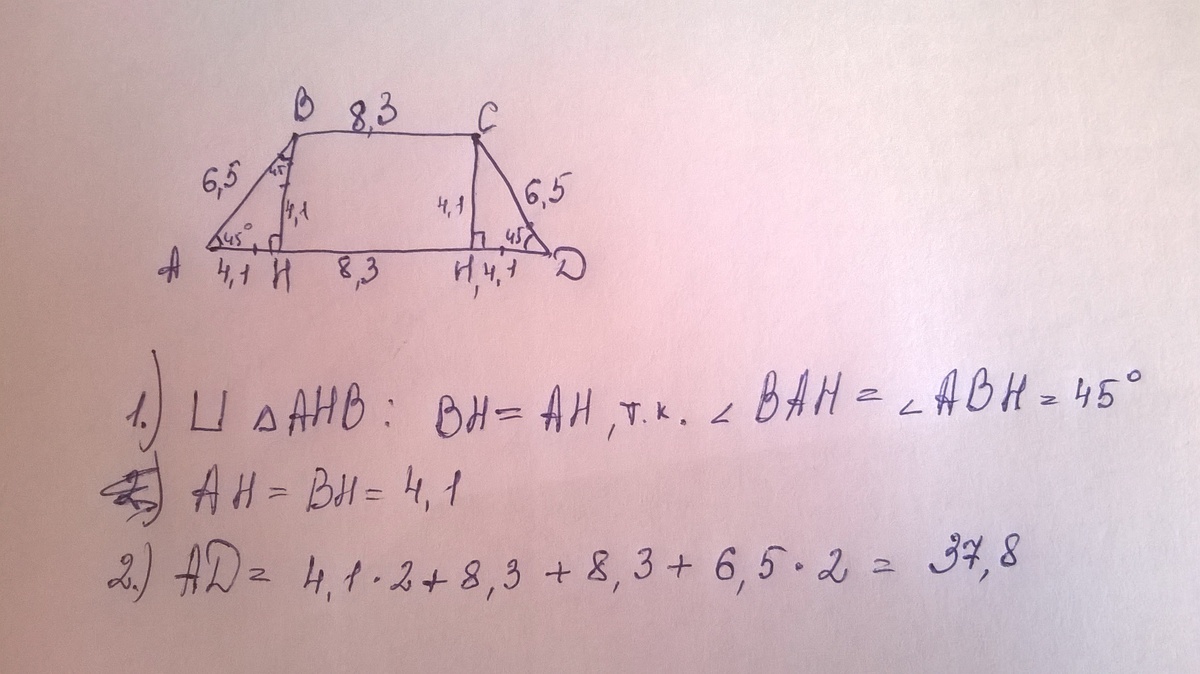 B 8,3 C
6,5 45 4,1 4,1 6,5
45° 45°
A 4,1 H 8,3 H, 4,1 D
1.) ⊔ △AHB: BH = AH, т.к. ∠BAH = ∠ABH = 45°
AH = BH = 4,1
2.) AD = 4,1·2 + 8,3 + 8,3 + 6,5·2 = 37,8